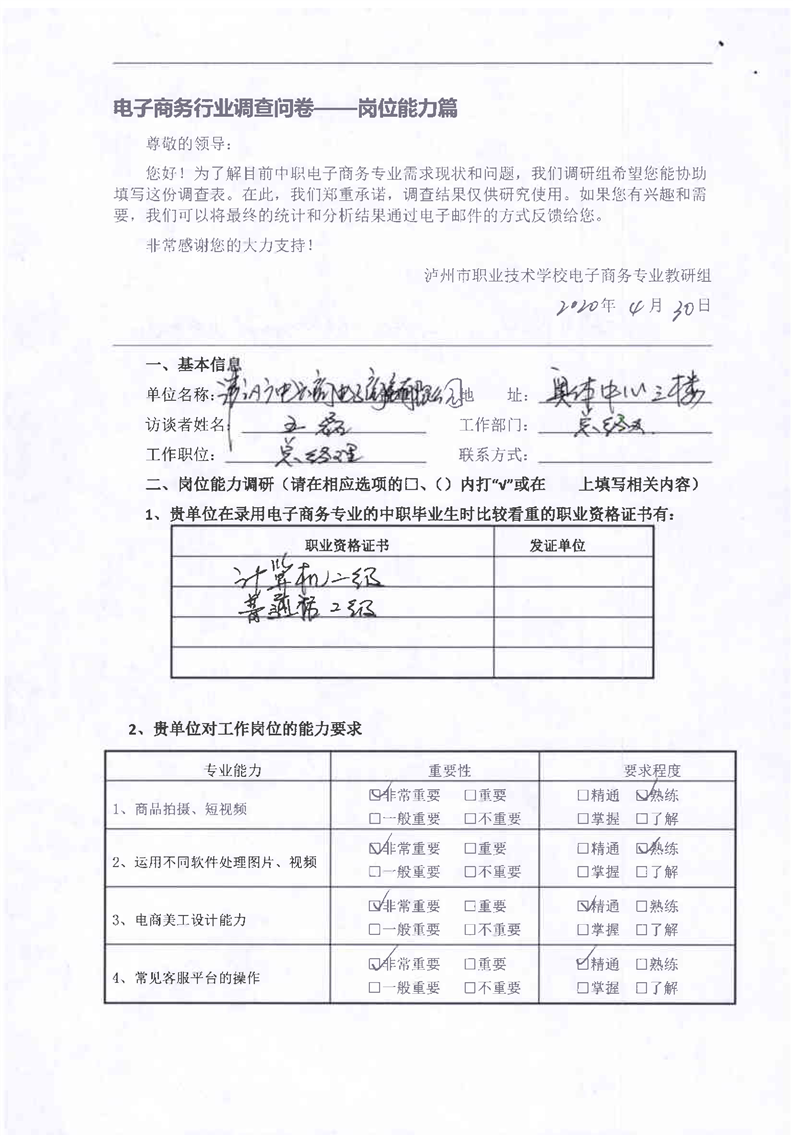 电子商务行业调查问卷——岗位能力篇
尊敬的领导：
您好！为了解目前中职电子商务专业需求现状和问题，我们调研组希望您能协助
填写这份调查表。在此，我们郑重承诺，调查结果仅供研究使用。如果您有兴趣和需
要，我们可以将最终的统计和分析结果通过电子邮件的方式反馈给您。
非常感谢您的大力支持！
泸州市职业技术学校电子商务专业教研组
2020年 4 月 30日
一、基本信息
单位名称： 有限公司 地 址： 奥体中心三楼
访谈者姓名 王 工作部门： 总经办
工作职位： 总经理 联系方式：
二、岗位能力调研（请在相应选项的□、（）内打“√”或在 上填写相关内容）
1、贵单位在录用电子商务专业的中职毕业生时比较看重的职业资格证书有：
职业资格证书 发证单位
计算机二级
普通话二级
2、贵单位对工作岗位的能力要求
专业能力 重要性 要求程度
1、商品拍摄、短视频 ☑非常重要 □重要 □精通 ☑熟练
□一般重要 □不重要 □掌握 □了解
2、运用不同软件处理图片、视频 ☑非常重要 □重要 □精通 ☑熟练
□一般重要 □不重要 □掌握 □了解
3、电商美工设计能力 ☑非常重要 □重要 ☑精通 □熟练
□一般重要 □不重要 □掌握 □了解
4、常见客服平台的操作 ☑非常重要 □重要 ☑精通 □熟练
□一般重要 □不重要 □掌握 □了解